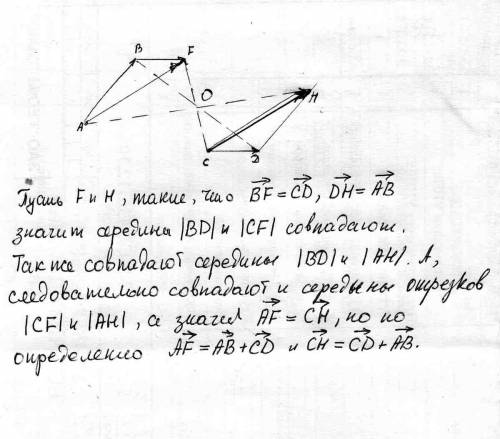 B F
O
H
A
C D
Пусть F и H, такие, что B͞F = C͞D, D͞H = A͞B
значит середины |BD| и |CF| совпадают.
Так же совпадают середины |BD| и |AH|. А,
следовательно совпадают и середины отрезков
|CF| и |AH|, а значит A͞F = C͞H, но по
определению A͞F = A͞B + C͞D и C͞H = C͞D + A͞B.